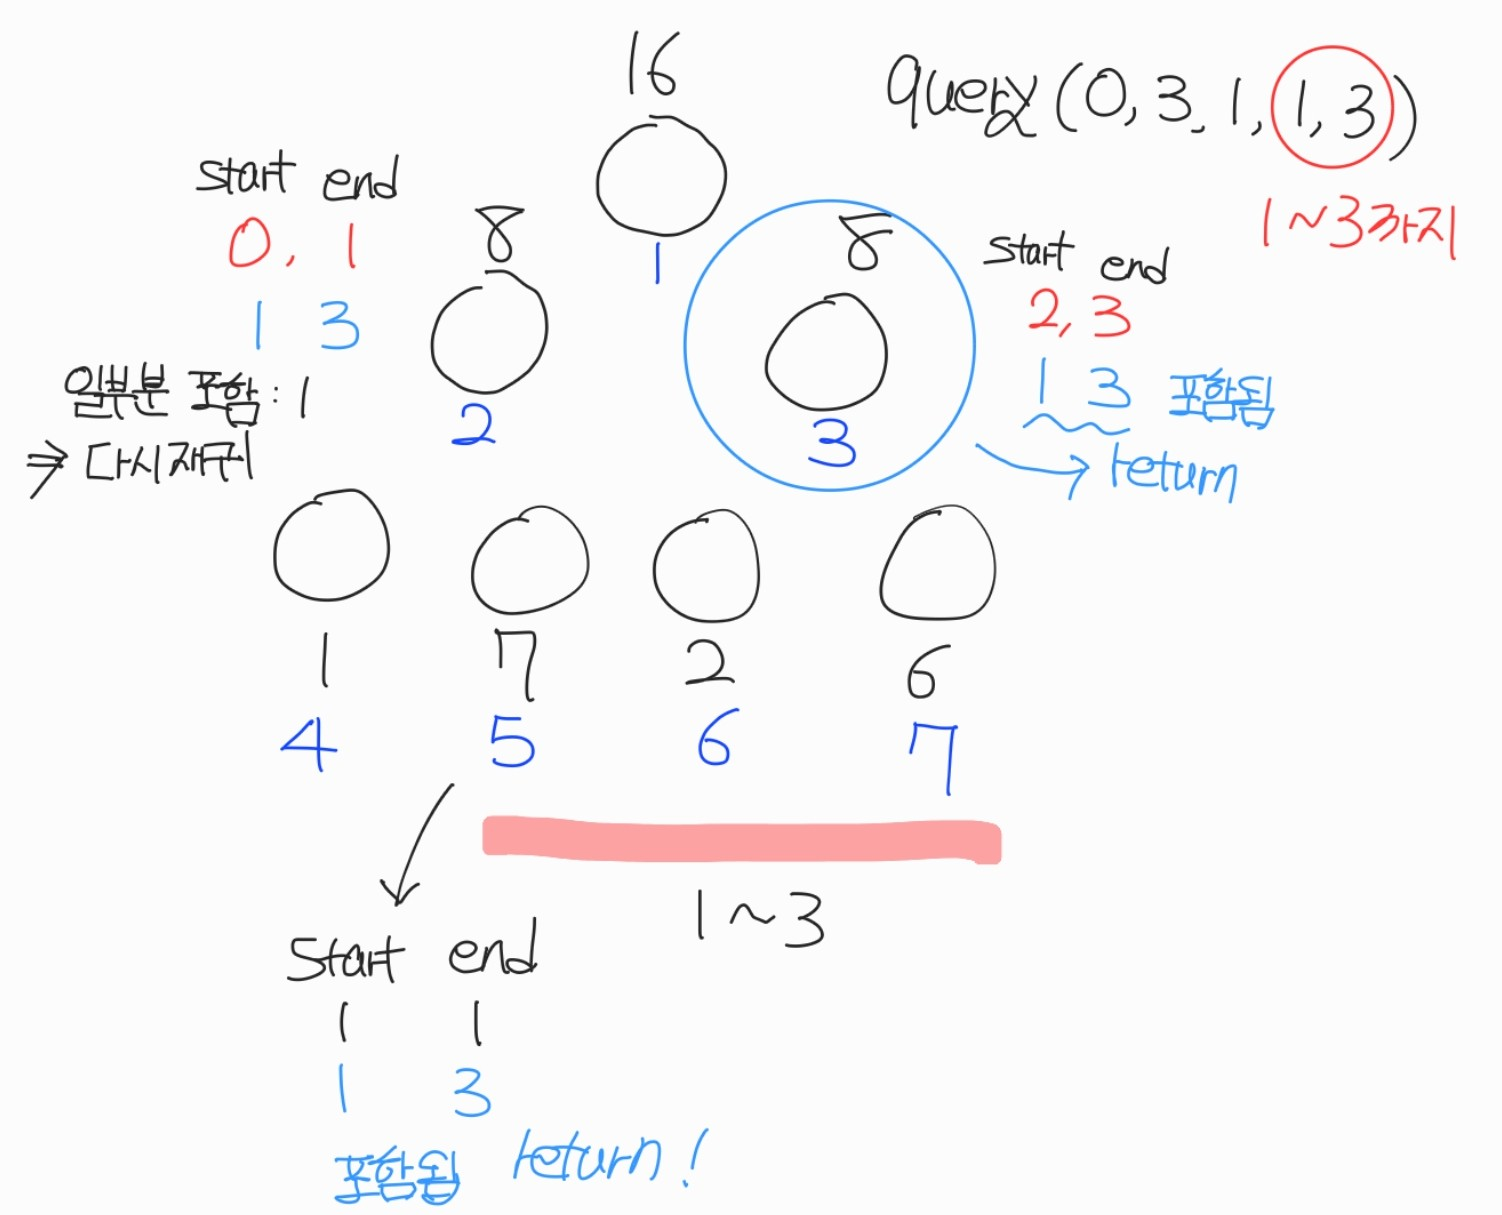 16
query(0, 3, 1, 1, 3)
1~3까지
1
start end
0, 1
1 3
일부분 포함 : 1
⇒ 다시재귀
8
2
8
3
start end
2, 3
1 3 포함됨
→ return
1 7 2 6
4 5 6 7
1~3
start end
1 1
1 3
포함됨 return!